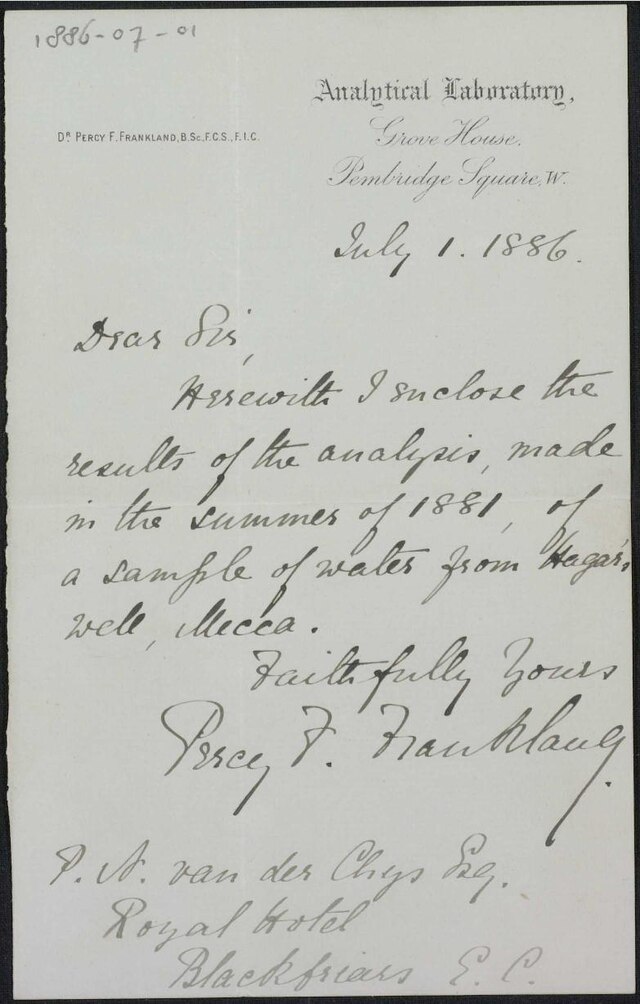 1886-07-01
Analytical Laboratory,
Dr. Percy F. Frankland, B.Sc., F.C.S., F.I.C.
Grove House.
Pembridge Square, W.
July 1. 1886.
Dear Sir,
Herewith I enclose the
results of the analysis, made
in the summer of 1881, of
a sample of water from Hagar's
well, Mecca.
Faithfully Yours
Percy F. Frankland.
P. N. van der Chys Esq.
Royal Hotel
Blackfriars E. C.